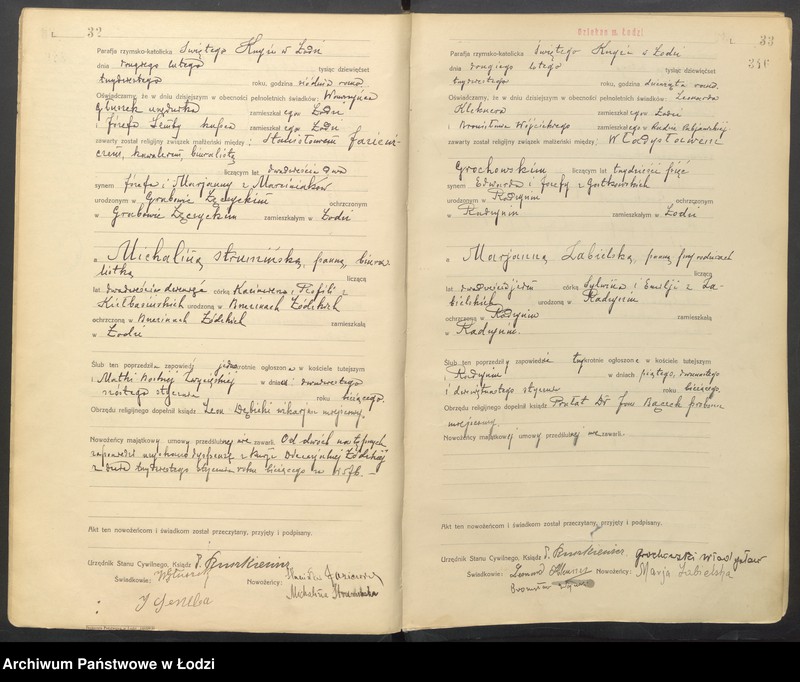 L. 32
Parafja rzymsko-katolicka Świętego Krzyża w Łodzi
dnia drugiego lutego tysiąc dziewięćset
trzydziestego roku, godzina siódma rano
Oświadczamy, że w dniu dzisiejszym w obecności pełnoletnich świadków: Wawrzyńca
zamieszkałego w Łodzi
i Józefa kupca zamieszkałego w Łodzi
zawarty został religijny związek małżeński między: Stanisławem Jaziem-
czem, kawalerem, biuralistą
liczącym lat dwadzieścia dwa
synem Józefa i Marjanny z Marciniaków
urodzonym w Grabowie Łęczyckim ochrzczonym
w Grabowie Łęczyckim zamieszkałym w Łodzi
a Michaliną Strumińską, panną, biura-
listką liczącą
lat dwadzieścia dziewięć córką Kazimierza i Teofili z
Kiełbasińskich urodzoną w Brzezinach Łódzkich
ochrzczoną w Brzezinach Łódzkich zamieszkałą
w Łodzi
Ślub ten poprzedziła zapowiedź jednokrotnie ogłoszona w kościele tutejszym
i Matki Boskiej Zwycięskiej w dniu dwudziestego
szóstego stycznia roku bieżącego.
Obrzędu religijnego dopełnił ksiądz Leon Dębski wikarjusz miejscowy.
Nowożeńcy majątkowej umowy przedślubnej nie zawarli. Od dwóch następnych
zapowiedzi uzyskano dyspensę z Kurji Diecezjalnej Łódzkiej
z dnia trzydziestego stycznia roku bieżącego za
Akt ten nowożeńcom i świadkom został przeczytany, przyjęty i podpisany.
Urzędnik Stanu Cywilnego, Ksiądz
Świadkowie: Nowożeńcy:
Michalina Strumińska
Dziekan m. Łodzi
L. 33
346
Parafja rzymsko-katolicka Świętego Krzyża w Łodzi
dnia drugiego lutego tysiąc dziewięćset
trzydziestego roku, godzina dziewiąta rano
Oświadczamy, że w dniu dzisiejszym w obecności pełnoletnich świadków: Leonarda
zamieszkałego w Łodzi
i Bronisława Wójcickiego zamieszkałego w Rudzie Pabjanickiej
zawarty został religijny związek małżeński między: Władysławem
Grochowskim liczącym lat trzydzieści pięć
synem Edwarda i Józefy z Gostkowskich
urodzonym w Radzyniu ochrzczonym
w Radzyniu zamieszkałym w Łodzi
a Marjanną Zabielską, panną, przy rodzicach
liczącą
lat dwadzieścia jeden córką Sylwina i Emilji z Za-
bielskich urodzoną w Radzyniu
ochrzczoną w Radzyniu zamieszkałą
w Radzyniu.
Ślub ten poprzedziły zapowiedzi trzykrotnie ogłoszone w kościele tutejszym
i Radzyniu w dniach piątego, dwunastego
i dziewiętnastego stycznia roku bieżącego.
Obrzędu religijnego dopełnił ksiądz Prałat Dr Jan Bączek proboszcz
miejscowy.
Nowożeńcy majątkowej umowy przedślubnej nie zawarli.
Akt ten nowożeńcom i świadkom został przeczytany, przyjęty i podpisany.
Urzędnik Stanu Cywilnego, Ksiądz Grochowski Władysław
Świadkowie: Leonard Nowożeńcy: Marja Zabielska
Bronisław
Archiwum Państwowe w Łodzi